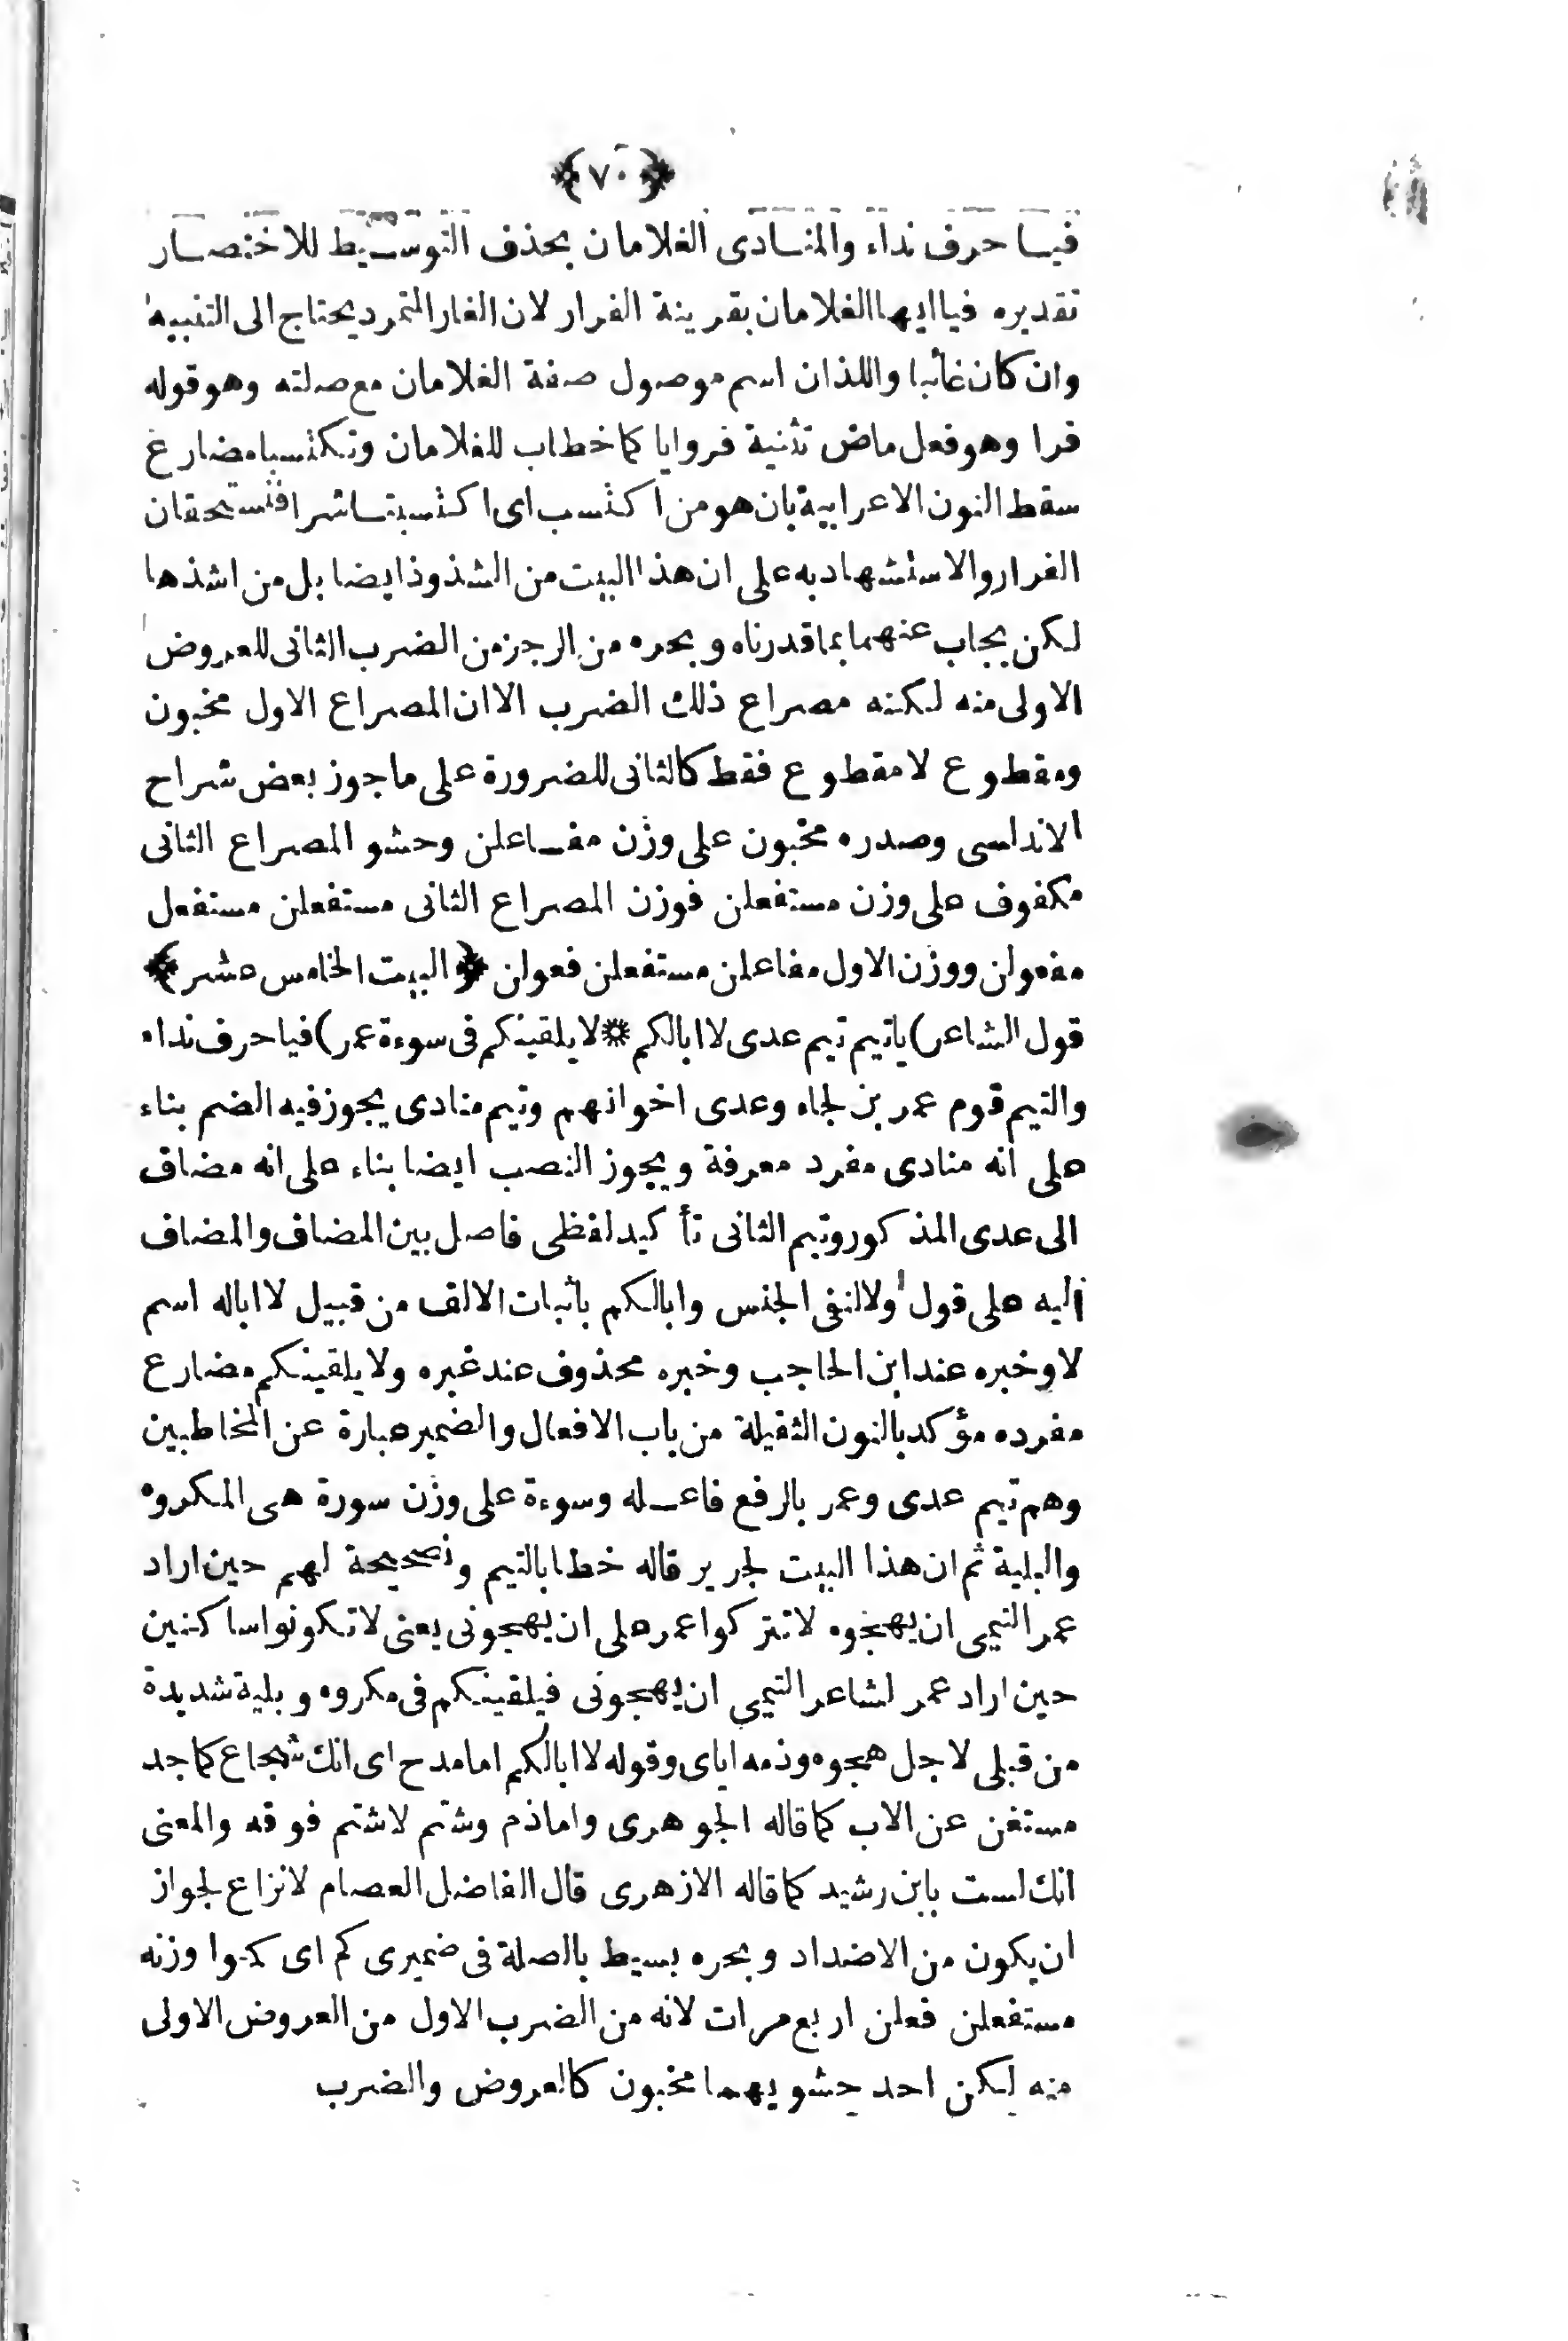 ﴿٧٠﴾
فيا حرف نداء والمنادى الغلامان بحذف التوسيط للاختصار
تقديره فيا ايها الغلامان بقرينة الفرار لان الفار المتمرد يحتاج الى التنبيه
وان كان غائبا واللذان اسم موصول صفة الغلامان مع صلته وهو قوله
فرا وهو فعل ماض تثنية فر وايا كما خطاب للغلامان وتكتسبا مضارع
سقط النون الاعرابية بان هو من اكتسب اى اكتسبتما شرا فتستحقان
الفرار والاستشهاد به على ان هذا البيت من الشذوذ ايضا بل من اشذها
لكن يجاب عنهما بما قدرناه وبحره من الرجز من الضرب الثانى للعروض
الاولى منه لكنه مصراع ذلك الضرب الا ان المصراع الاول مخبون
ومقطوع لا مقطوع فقط كالثانى للضرورة على ما جوز بعض شراح
الاندلسى وصدره مخبون على وزن مفاعلن وحشو المصراع الثانى
مكفوف على وزن مستفعلن فوزن المصراع الثانى مستفعلن مستفعل
مفعولن ووزن الاول مفاعلن مستفعلن فعولن ﴿البيت الخامس عشر﴾
قول الشاعر) ياتيم تيم عدى لا ابالكم * لا يلقينكم فى سوءة عمر) فيا حرف نداء
والتيم قوم عمر بن لجاء وعدى اخوانهم وتيم منادى يجوز فيه الضم بناء
على انه منادى مفرد معرفة ويجوز النصب ايضا بناء على انه مضاف
الى عدى المذكور وتيم الثانى تأكيد لفظى فاصل بين المضاف والمضاف
اليه على قول ولا لنفى الجنس وابالكم باثبات الالف من قبيل لا اباله اسم
لا وخبره عند ابن الحاجب وخبره محذوف عند غيره ولا يلقينكم مضارع
مفرده مؤكد بالنون الثقيلة من باب الافعال والضمير عبارة عن المخاطبين
وهم تيم عدى وعمر بالرفع فاعله وسوءة على وزن سورة هى المكروه
والبلية ثم ان هذا البيت لجرير قاله خطابا لتيم ونصيحة لهم حين اراد
عمر التيمى ان يهجوه لا تتركوا عمر على ان يهجونى يعنى لا تكونوا ساكنين
حين اراد عمر لشاعر التيمى ان يهجونى فيلقينكم فى مكروه وبلية شديدة
من قبلى لاجل هجوه وذمه اياى وقوله لا ابالكم اما مدح اى انك شجاع كما جد
مستغن عن الاب كما قاله الجوهرى واما ذم وشتم لا شتم فوقه والمعنى
انك لست بابن رشيد كما قاله الازهرى قال الفاضل العصام لا نزاع لجواز
ان يكون من الاضداد وبحره بسيط بالصلة فى ضميرى كم اى كموا وزنه
مستفعلن فعلن اربع مرات لانه من الضرب الاول من العروض الاولى
منه لكن احد حشويهما مخبون كالعروض والضرب